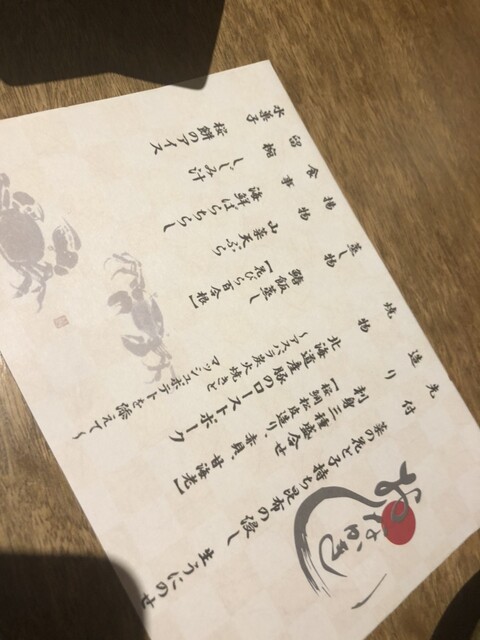 おしながき
先付
菜の花と子持ち昆布の浸し 生うにのせ
造り
刺身三種盛合せ
【桜鯛松皮造り、赤貝、甘海老】
焼物
北海道産豚のローストポーク
～アスパラ炭火焼きと
マッシュポテトを添えて～
蒸し物
鰆飯蒸し
【花びら百合根】
揚物
山菜天ぷら
食事
海鮮ばらちらし
留椀
しじみ汁
水菓子
桜餅のアイス